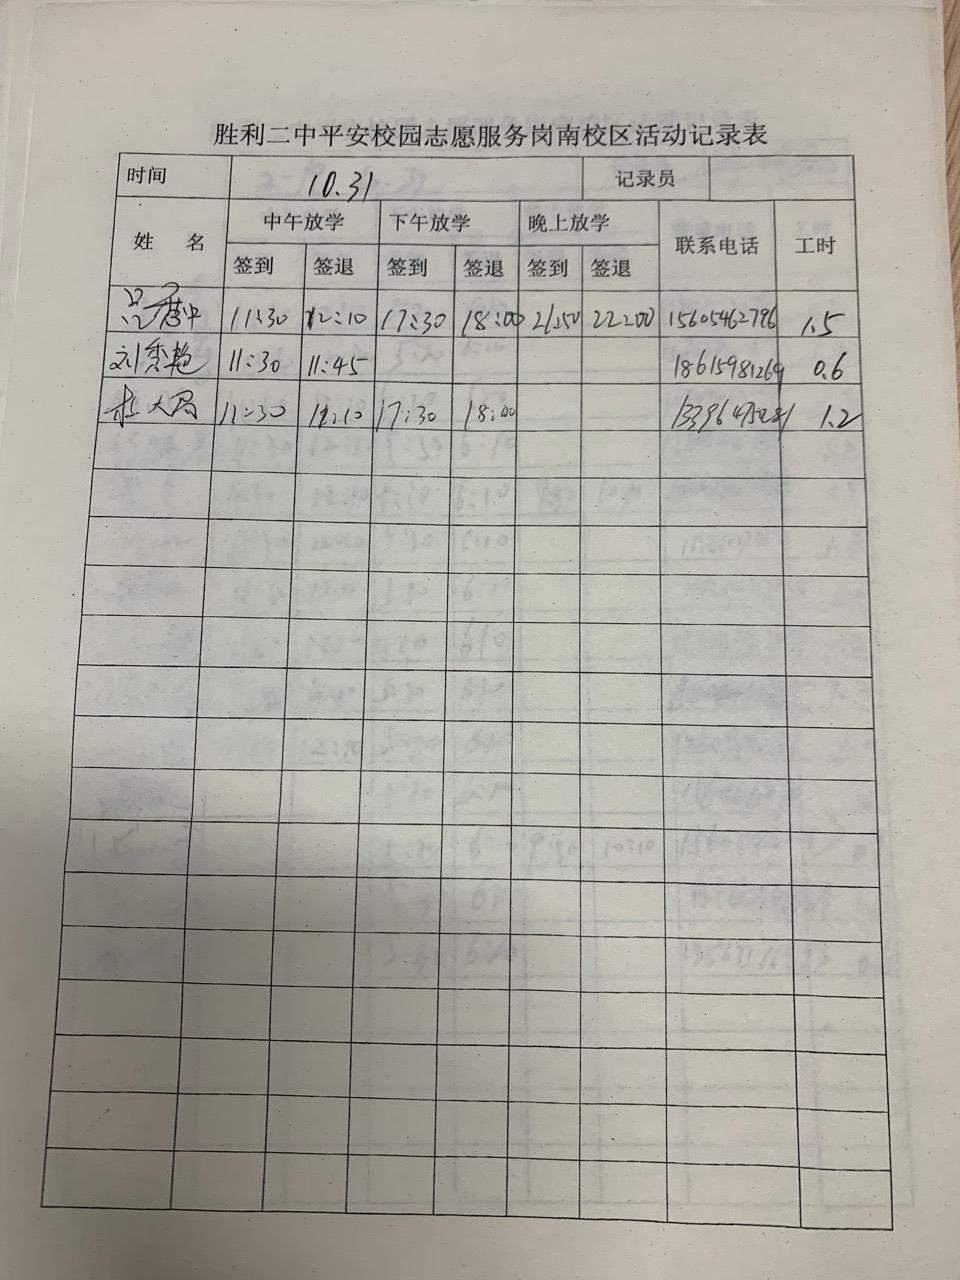 胜利二中平安校园志愿服务岗南校区活动记录表
时间 10.31 记录员
姓 名 中午放学 下午放学 晚上放学 联系电话 工时
签到 签退 签到 签退 签到 签退
11:30 12:10 17:30 18:00 21:50 22:00 15605462796 1.5
刘秀艳 11:30 11:45 18615981269 0.6
杜大局 11:30 12:10 17:30 18:00 1.2